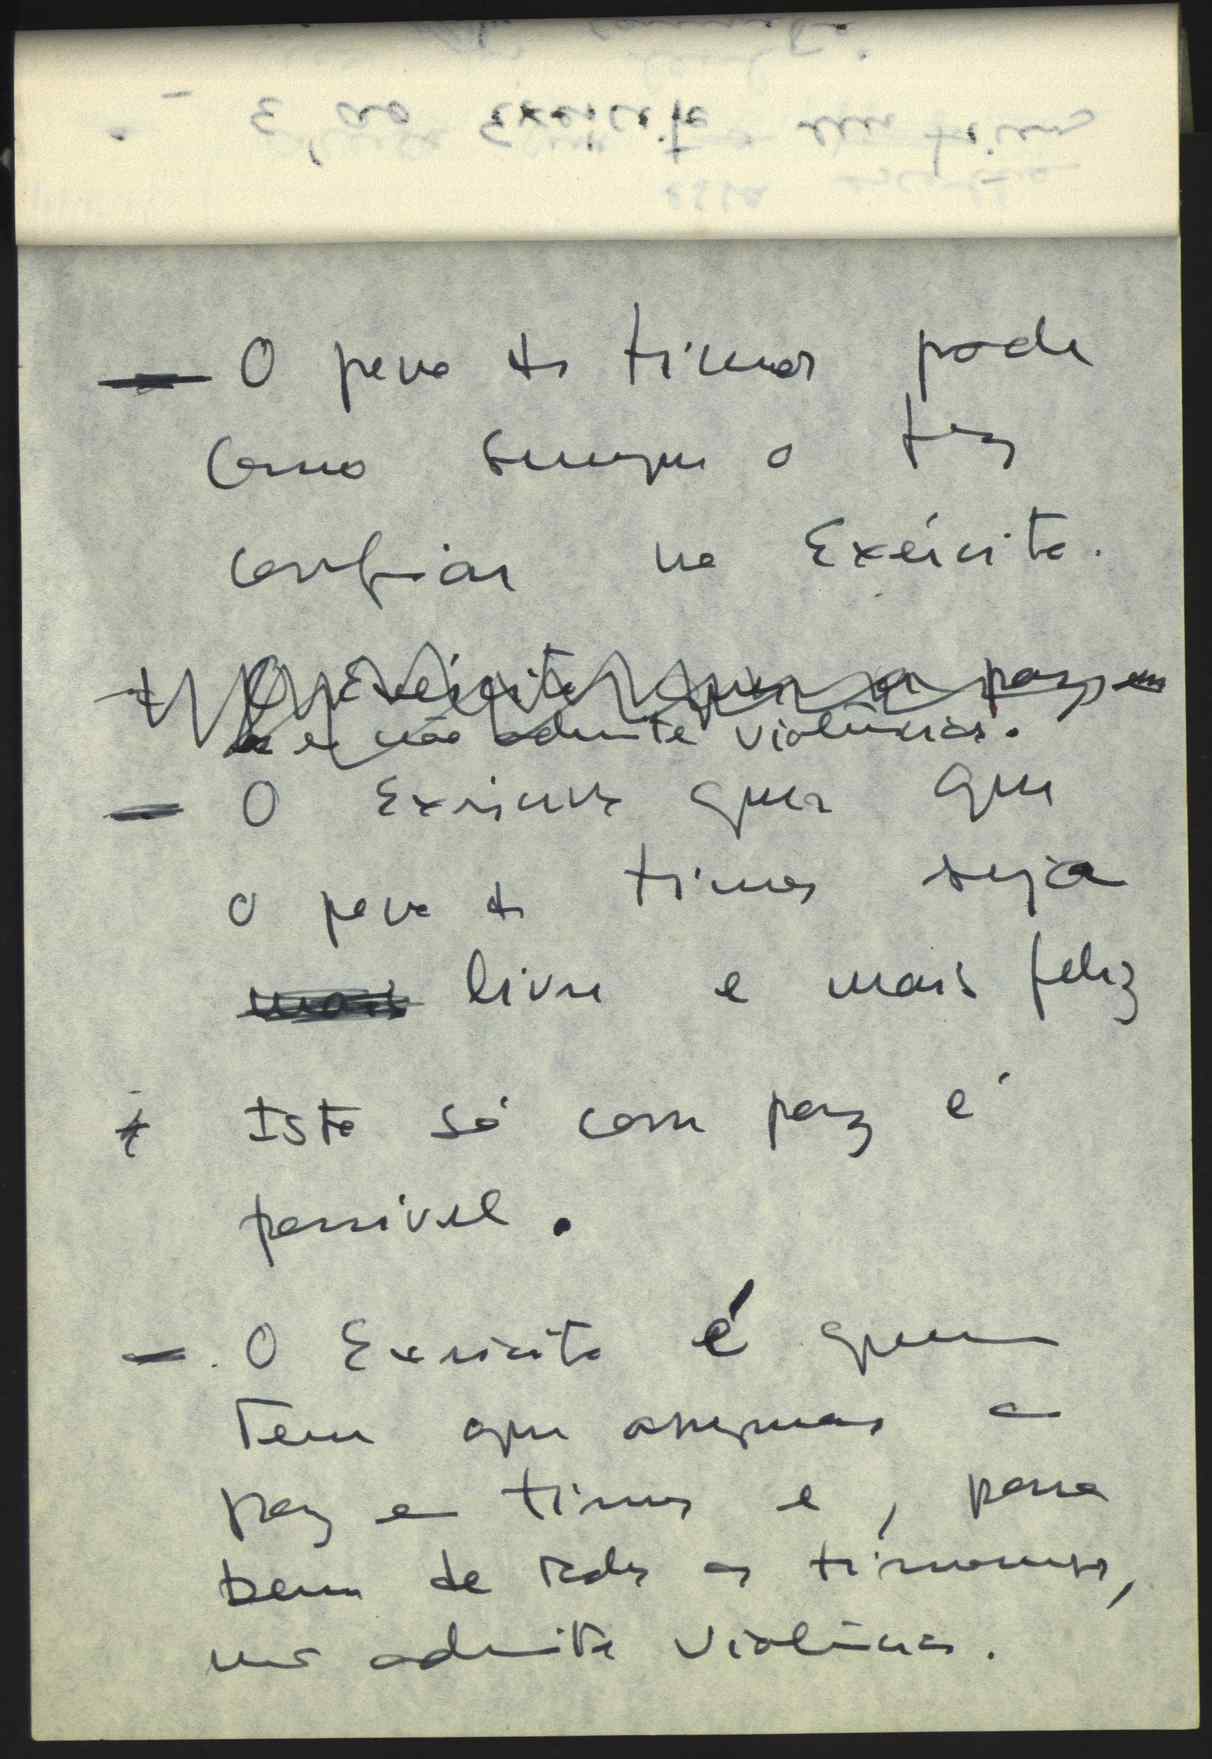 — O povo de timor pode
como sempre o fez
confiar no Exército.
O Exército quer a paz em
e não admite violências.
— O Exército quer que
o povo de timor seja
mais livre e mais feliz
Isto só com paz é
possivel.
— O Exercito é quem
tem que assegurar a
paz em timor e, para
bem de todos os timorenses,
não admite violências.